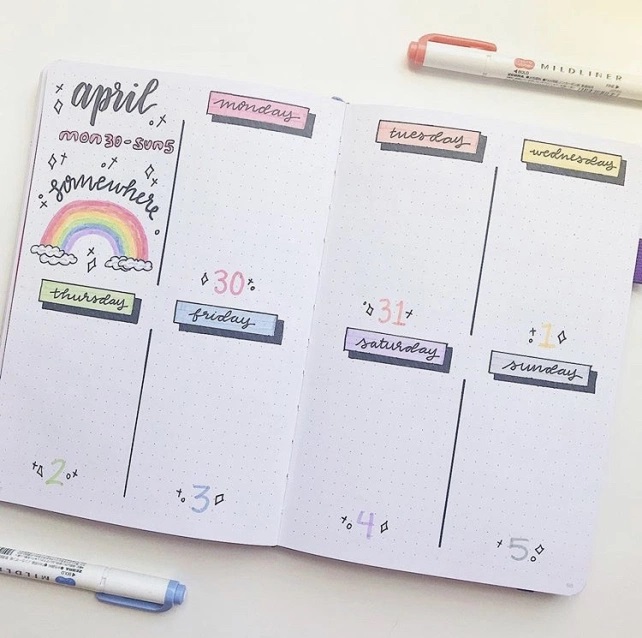 april
mon 30 - sun 5
somewhere
monday
30
tuesday
31
wednesday
1
thursday
2
friday
3
saturday
4
sunday
5
MILDLINER
MILDLINER